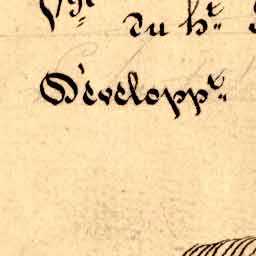 du h.t
Développ.t